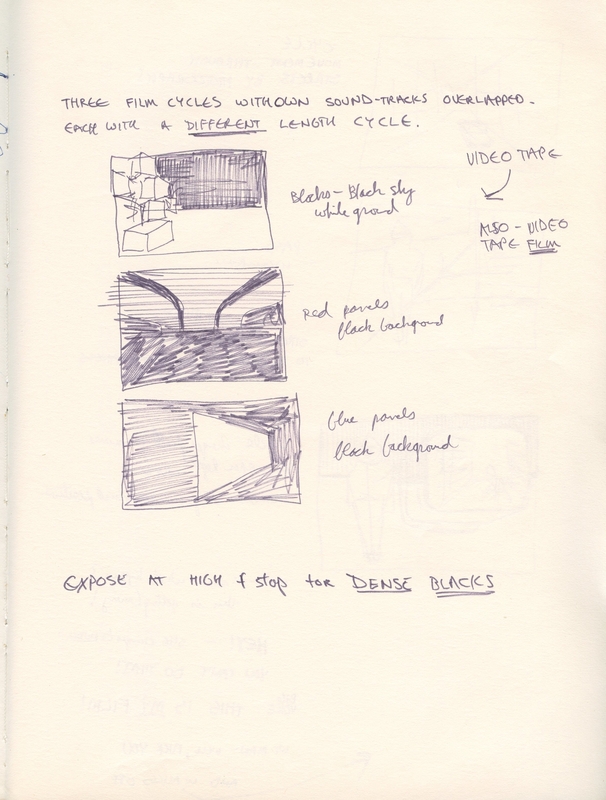 THREE FILM CYCLES WITH OWN SOUND-TRACKS OVERLAPPED.
EACH WITH A DIFFERENT LENGTH CYCLE.
VIDEO TAPE
ALSO - VIDEO
TAPE FILM
Blocks - Black sky
white ground
Red panels
black backgrond
blue panels
black backgrond
EXPOSE AT HIGH f stop for DENSE BLACKS